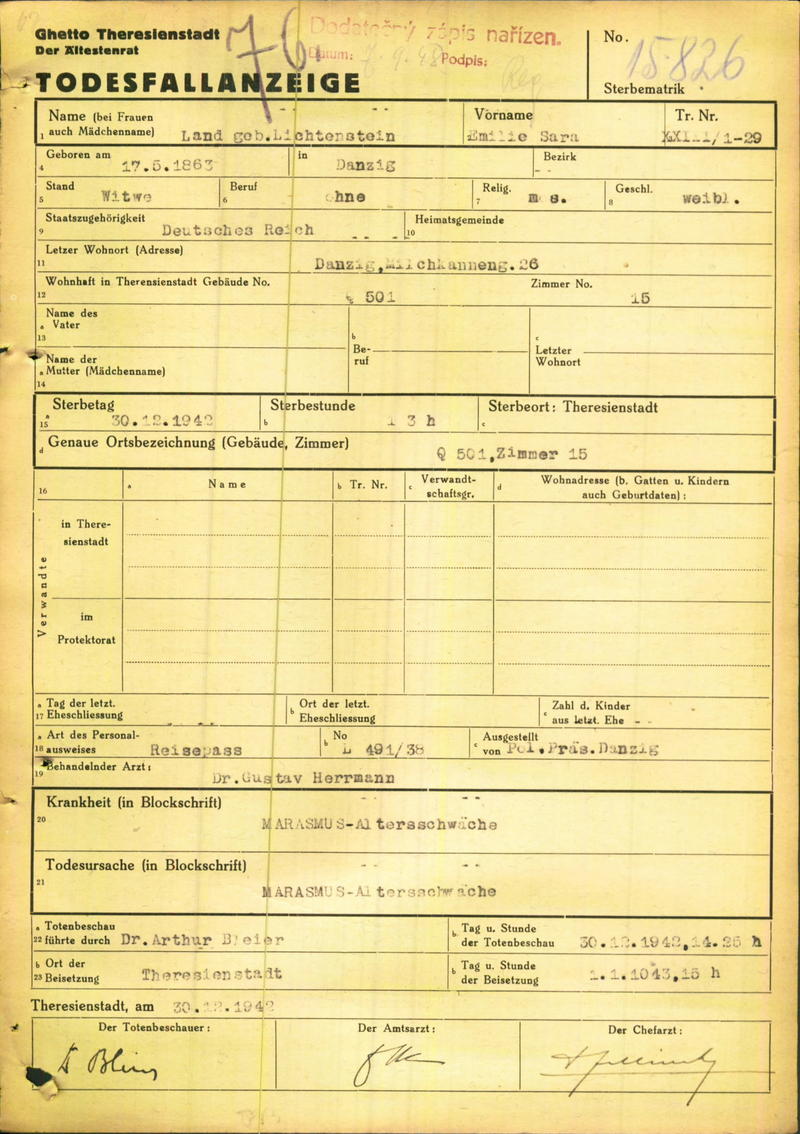 Ghetto Theresienstadt
Der Ältestenrat
76
Dodatečný zápis nařízen.
Datum: 7. 9. 48 Podpis:
No. 15826
TODESFALLANZEIGE
Sterbematrik
Name (bei Frauen Vorname Tr. Nr.
1 auch Mädchenname) Land geb.Lichtenstein Emilie Sara 1-29
Geboren am in Bezirk
4 17.5.1863 Danzig - -
Stand Beruf Relig. Geschl.
5 Witwe 6 ohne 7 m s. 8 weibl.
Staatszugehörigkeit Heimatsgemeinde
9 Deutsches Reich 10
Letzer Wohnort (Adresse)
11 Danzig,Milchkanneng.26
Wohnhaft in Therensienstadt Gebäude No. Zimmer No.
12 501 15
Name des
a Vater
13 b c
Be- Letzter
ruf Wohnort
Name der
a Mutter (Mädchenname)
14
Sterbetag Sterbestunde Sterbeort: Theresienstadt
15 a 30.12.1942 b 3 h c
d Genaue Ortsbezeichnung (Gebäude, Zimmer)
Q 501,Zimmer 15
16 a Name b Tr. Nr. c Verwandt- d Wohnadresse (b. Gatten u. Kindern
schaftsgr. auch Geburtdaten) :
Verwandte
in There-
sienstadt
im
Protektorat
a Tag der letzt. b Ort der letzt. c Zahl d. Kinder
17 Eheschliessung Eheschliessung aus letzt. Ehe - -
a Art des Personal- b No c Ausgestellt
18 ausweises Reisepass 491/38 von Pol.Präs.Danzig
19 Behandelnder Arzt: Dr.Gustav Herrmann
Krankheit (in Blockschrift)
20 MARASMUS-Altersschwäche
Todesursache (in Blockschrift)
21 MARASMUS-Altersschwäche
a Totenbeschau b Tag u. Stunde
22 führte durch Dr.Arthur Bleier der Totenbeschau 30.12.1942,14.25 h
b Ort der b Tag u. Stunde
23 Beisetzung Theresienstadt der Beisetzung 1.1.1043,15 h
Theresienstadt, am 30.12.1942
Der Totenbeschauer: Der Amtsarzt: Der Chefarzt: